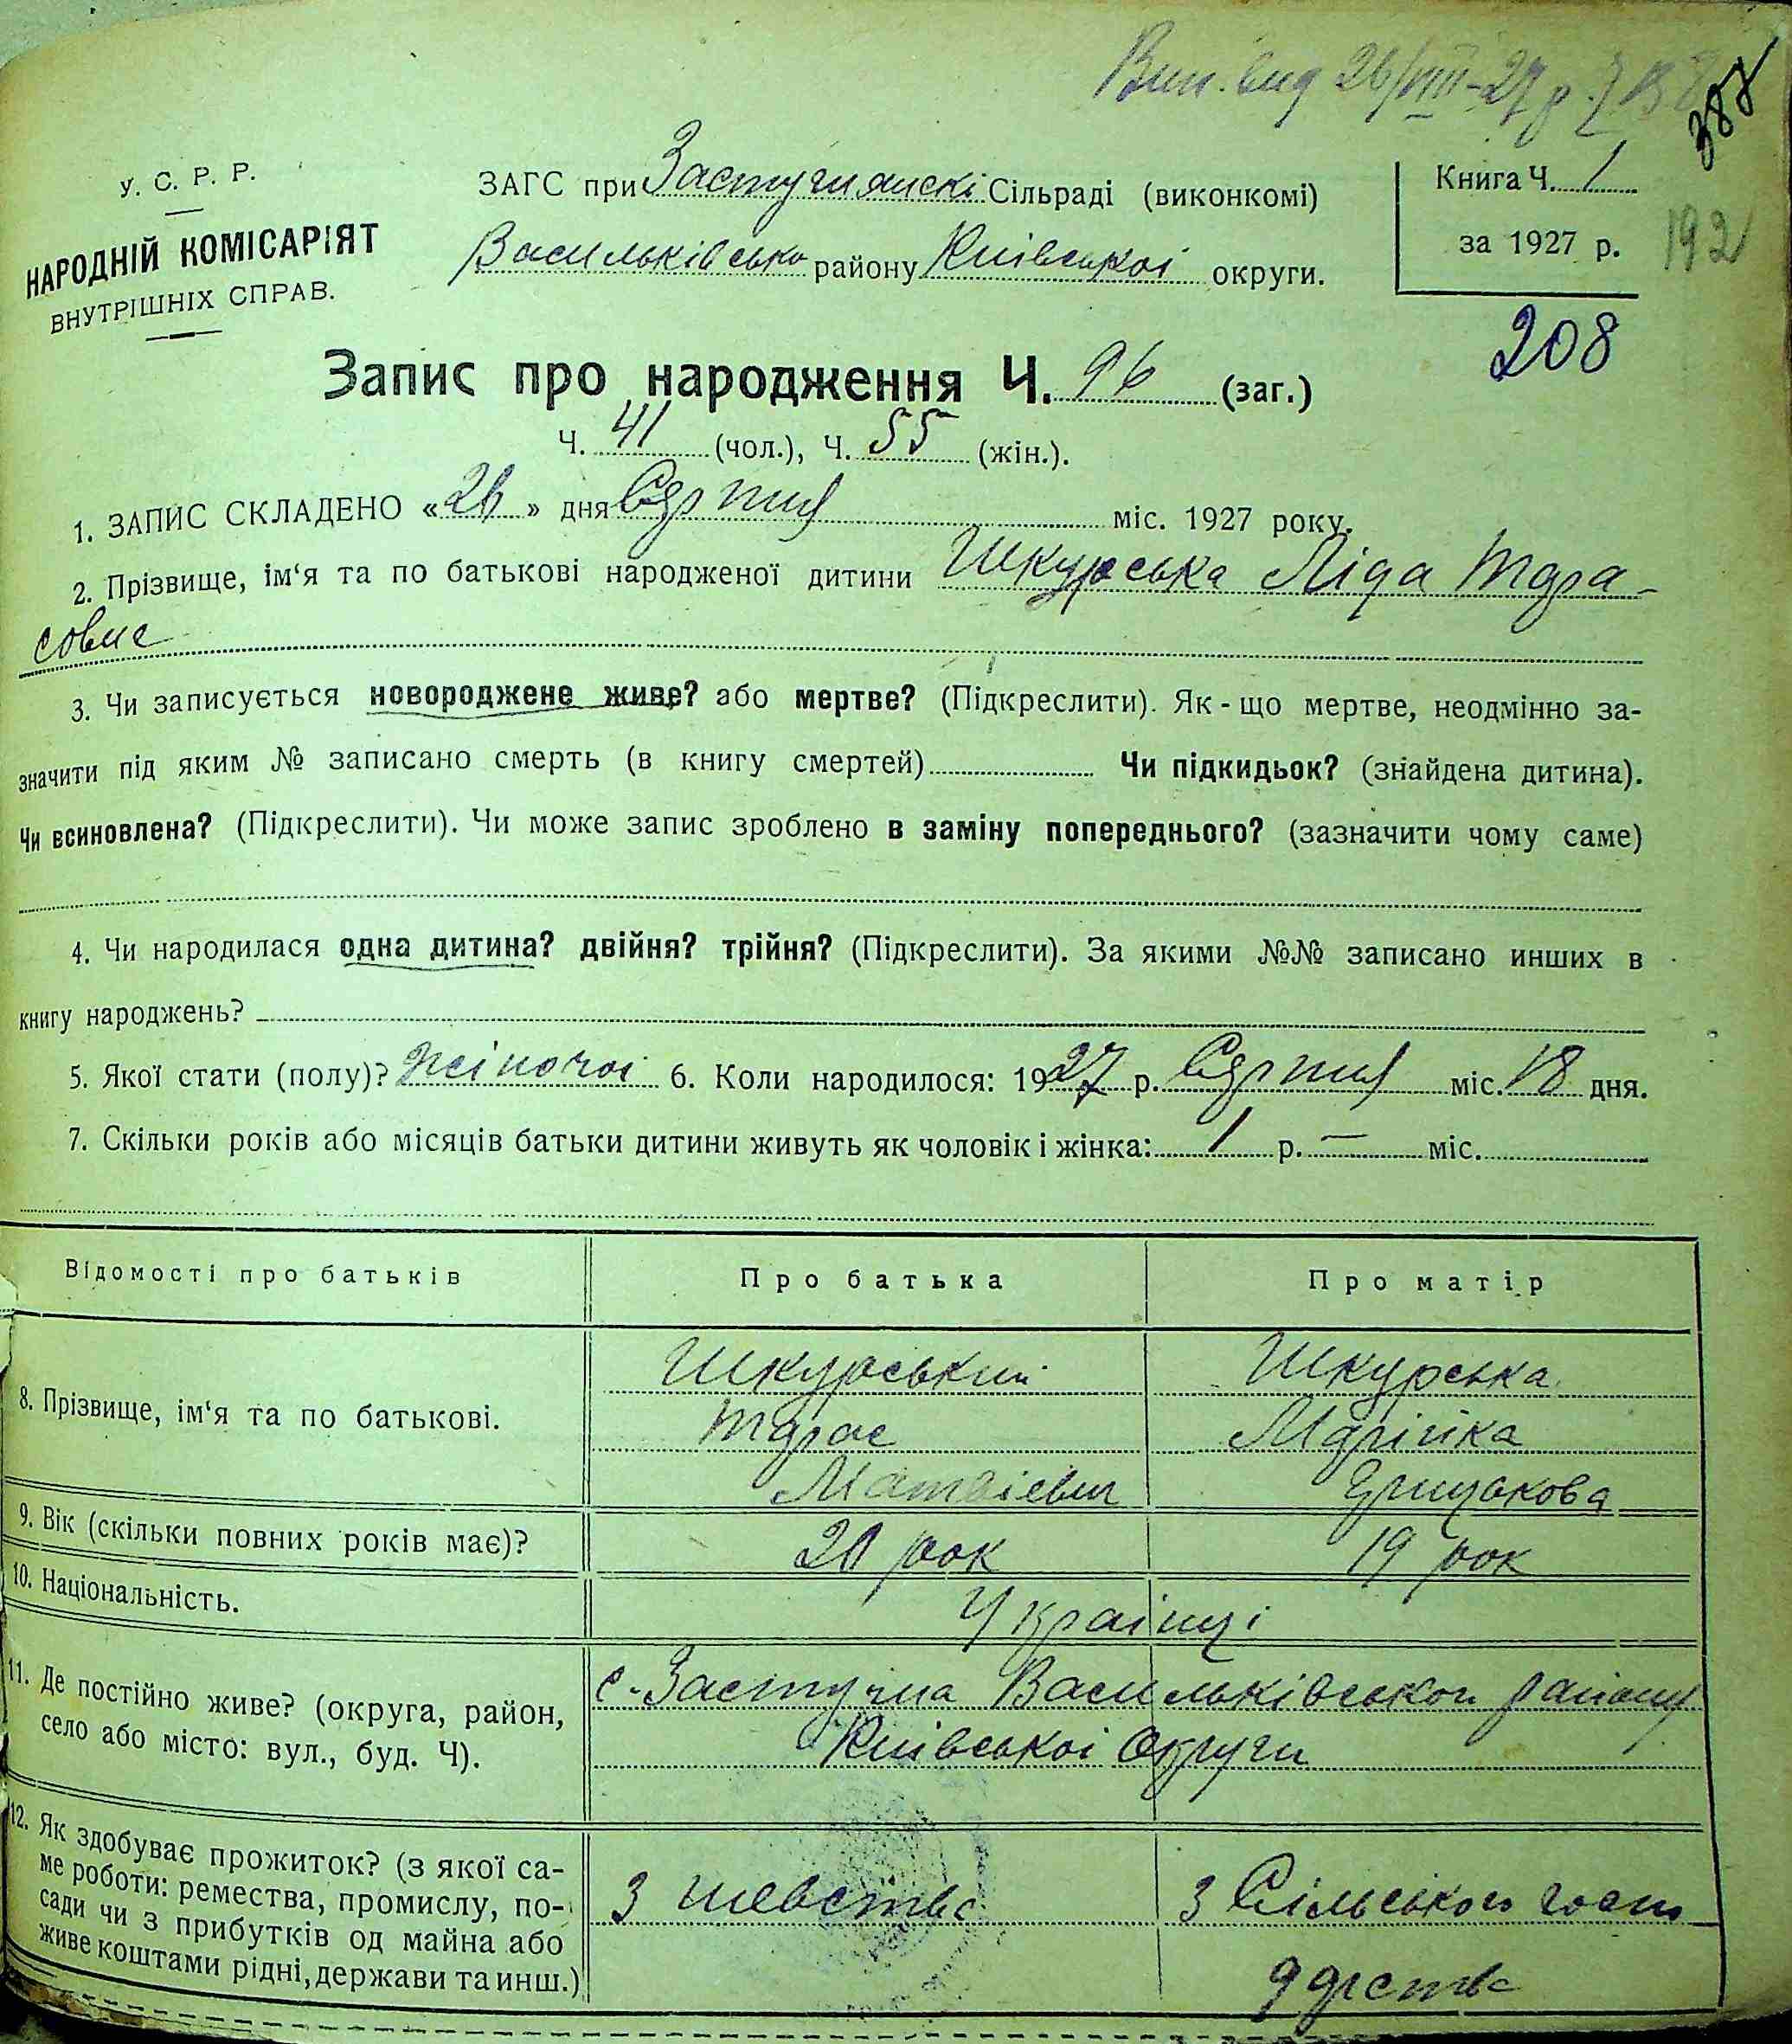 Вип. вид 26/VIII-27 р.
388
У. С. Р. Р.
НАРОДНІЙ КОМІСАРІЯТ
ВНУТРІШНІХ СПРАВ.
ЗАГС при Застугнянскі Сільраді (виконкомі)
Васильківсько району Київської округи.
Книга Ч. 1
за 1927 р.
192
208
Запис про народження Ч. 96 (заг.)
Ч. 41 (чол.), Ч. 55 (жін.).
1. ЗАПИС СКЛАДЕНО «26» дня Серпня міс. 1927 року.
2. Прізвище, ім‘я та по батькові народженої дитини Шкурська Ліда Тара-
совна
3. Чи записується новороджене живе? або мертве? (Підкреслити). Як-що мертве, неодмінно за-
значити під яким № записано смерть (в книгу смертей) Чи підкидьок? (знайдена дитина).
Чи всиновлена? (Підкреслити). Чи може запис зроблено в заміну попереднього? (зазначити чому саме)
4. Чи народилася одна дитина? двійня? трійня? (Підкреслити). За якими №№ записано инших в
книгу народжень?
5. Якої стати (полу)? жіночої 6. Коли народилося: 1927 р. Серпня міс. 18 дня.
7. Скільки років або місяців батьки дитини живуть як чоловік і жінка: 1 р. — міс.
Відомості про батьків Про батька Про матір
8. Прізвище, ім‘я та по батькові.
Шкурський Шкурська
Тарас Марійка
Матвієвич
9. Вік (скільки повних років має)? 20 рок 19 рок
10. Національність. Українці
11. Де постійно живе? (округа, район,
село або місто: вул., буд. Ч).
с. Застугна Васильківського району
Київської Округи
12. Як здобуває прожиток? (з якої са-
ме роботи: ремества, промислу, по-
сади чи з прибутків од майна або
живе коштами рідні, держави та инш.)
З шевства З Сільського госпо
дарства